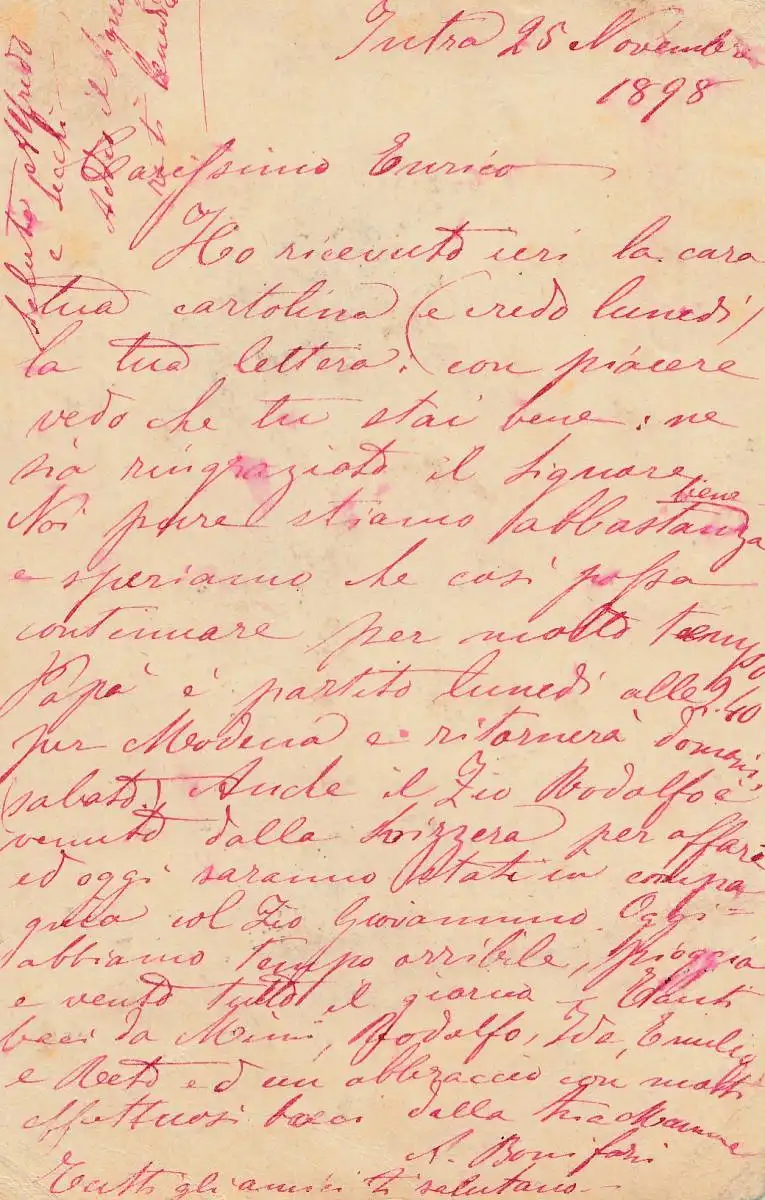 Intra 25 Novembre
1898
Carissimo Enrico
Ho ricevuto ieri la cara
tua cartolina (e credo lunedì)
la tua lettera. con piacere
vedo che tu stai bene: ne
sia ringraziato il Signore.
bene
Noi pure stiamo abbastanza
e speriamo che così possa
continuare per molto tempo
Papà è partito lunedì alle 9.40
per Modena e ritornerà domani,
(sabato). Anche il Zio Rodolfo è
venuto dalla Svizzera per affari
ed oggi saranno stati in compa
gnia col Zio Giovannino. Oggi
abbiamo tempo orribile, pioggia
e vento tutto il giorno. Tanti
baci da Mimi, Rodolfo, Ida, Emilio
e Reto ed un abbraccio con molti
affettuosi baci dalla tua Mamma
A. Bonifazi
Tutti gli amici ti salutano
Saluta Alfredo
e Secchi
Addio il Signo
re ti bened